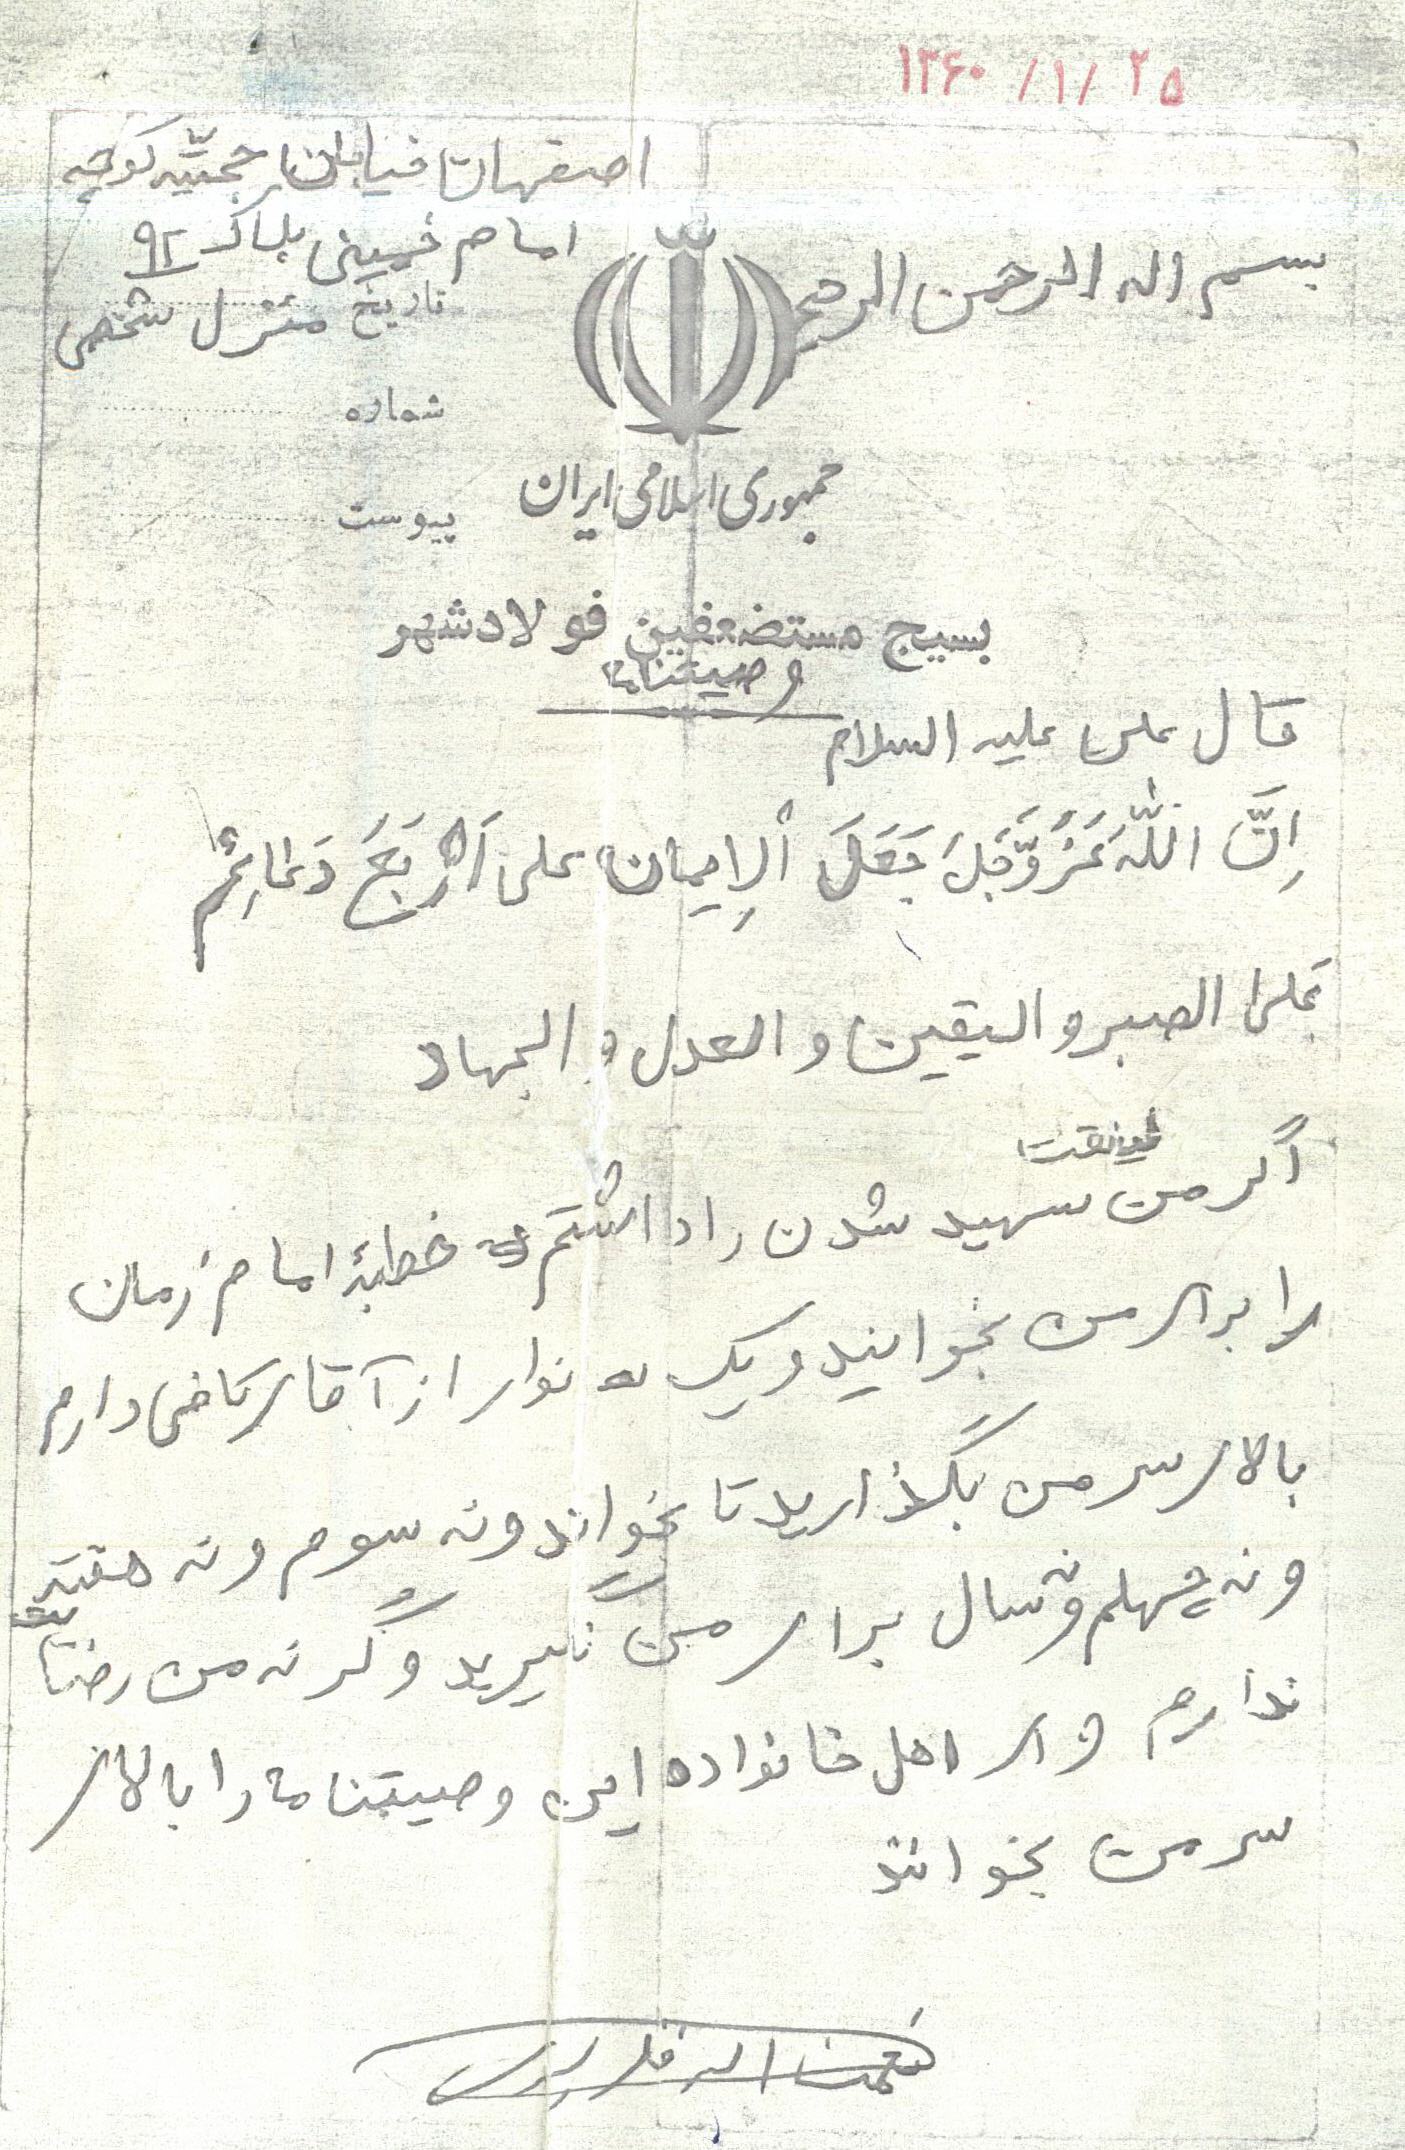 ۱۳۶۰/۱/۲۵
اصفهان خیابان حجتیه کوچه
امام خمینی پلاک ۹۲
بسم اله الرحمن الرحیم
تاریخ منزل شخصی
شماره
جمهوری اسلامی ایران
پیوست
بسیج مستضعفین فولادشهر
وصیتنامه
قال علی علیه السلام
اِنَّ اللّهَ عَزَّوَجَلَ جَعَلَ اْلاِیمان علی اَرْبَعَ دَعائِم
عَلی الصبر و الیقین و العدل و الجهاد
اگر من لیاقت سهید شدن را داشتم خطبۀ امام زمان
را برای من بخوانید و یک نوار از آقای کافی دارم
بالای سر من بگذارید تا بخواند و نه سوم و نه هفته
و نه چهلم و نه سال برای من نگیرید وگرنه من رضایت
ندارم و از اهل خانواده این وصیتنامه را بالای
سر من بخواند
نعمت اله